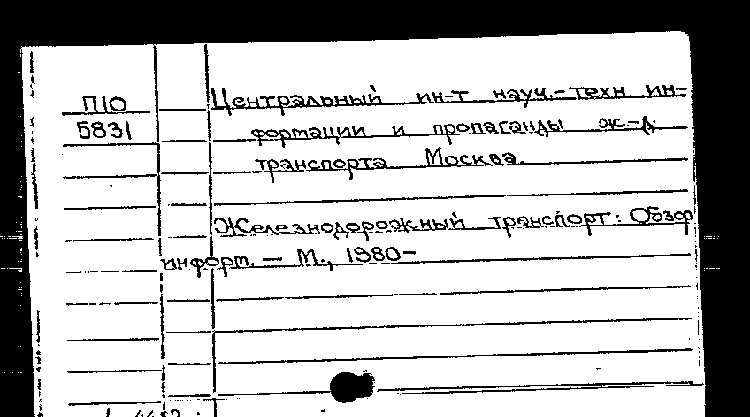 П10
5831
Центральный ин-т науч.-техн ин-
формации и пропаганды ж-д.
транспорта Москва.
Железнодорожный транспорт: Обзор
информ. — М., 1980-